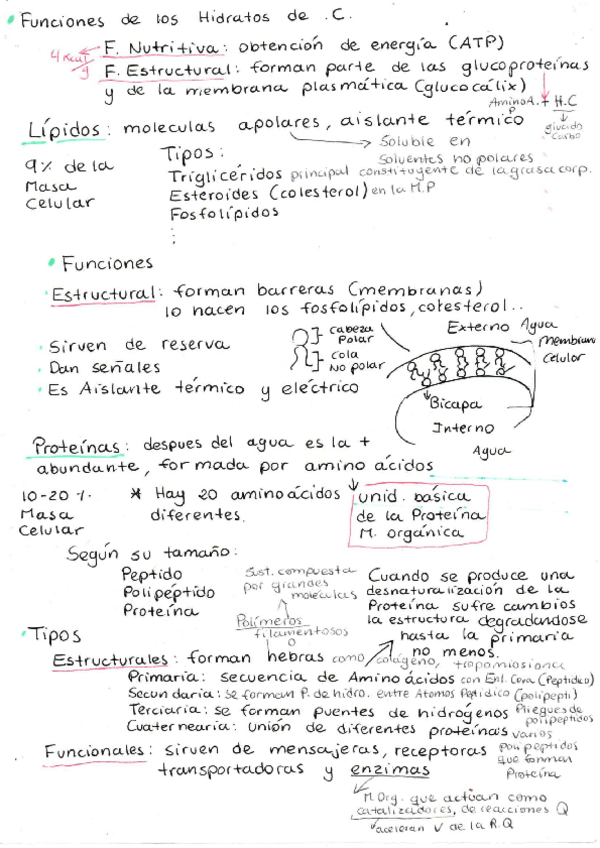 Funciones de los Hidratos de .C.
4 Kcal/g
F. Nutritiva: obtención de energía (ATP)
F. Estructural: forman parte de las glucoproteínas
y de la membrana plasmática (glucocálix)
Amino A. + H.C
P
glucido
Carbo
Lípidos: moleculas apolares, aislante térmico
Soluble en
Solventes no polares
9% de la
Masa
Celular
Tipos:
Triglicéridos principal constituyente de la grasa corp.
Esteroides (colesterol) en la M.P
Fosfolípidos
Funciones
Estructural: forman barreras (membranas)
lo hacen los fosfolípidos, colesterol..
Sirven de reserva
Dan señales
Es Aislante térmico y eléctrico
cabeza
Polar
cola
No polar
Externo Agua
membrana
celular
Bicapa
Interno
Agua
Proteínas: despues del agua es la +
abundante, formada por amino ácidos
10-20 %
Masa
Celular
* Hay 20 aminoácidos
diferentes.
unid. básica
de la Proteína
M. orgánica
Según su tamaño:
Peptido
Polipéptido
Proteína
Sust. compuesta
por grandes
moléculas
Polímeros
filamentosos
o
Cuando se produce una
desnaturalización de la
Proteína sufre cambios
la estructura degradandose
hasta la primaria
no menos.
Tipos
Estructurales: forman hebras como colágeno, tropomiosiona
Primaria: secuencia de Amino ácidos con Enl. Cova (Peptideo)
Secundaria: se forman P. de hidro. entre Atomos Peptidico (polipepti)
Terciaria: se forman puentes de hidrógenos Pliegues de
polipeptidos
Cuaternearia: unión de diferentes proteínas varios
polipeptidos
que forman
Proteína
Funcionales: sirven de mensajeras, receptoras
transportadoras y enzimas
M.Org. que actúan como
catalizadores, de reacciones Q
aceleran v de la R.Q